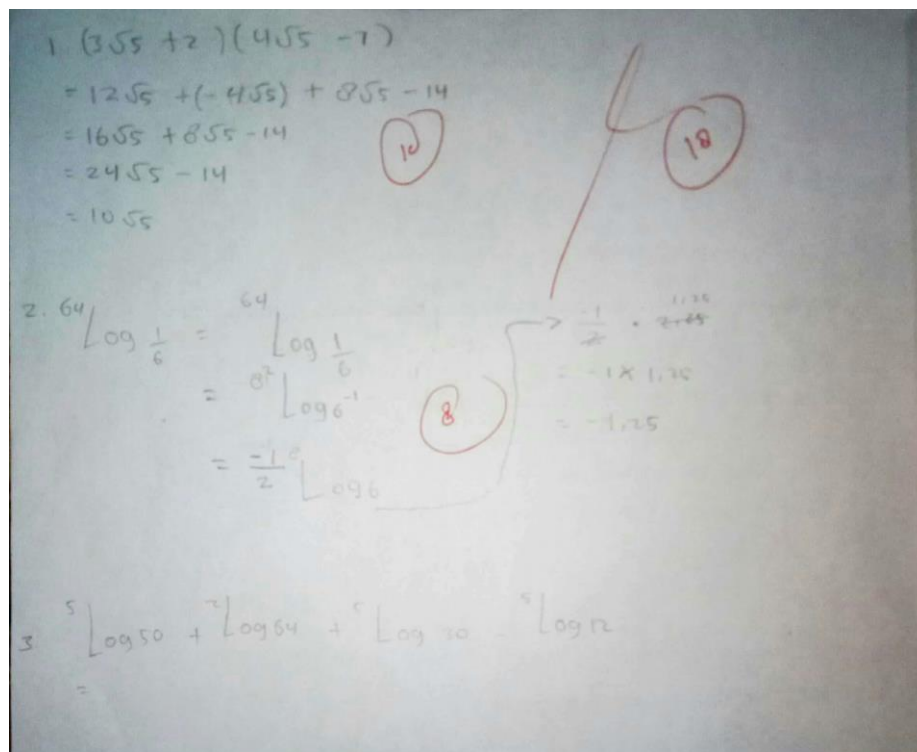 1. (3√5 + 2)(4√5 - 7)
= 12√5 + (-4√5) + 8√5 - 14
= 16√5 + 8√5 - 14
= 24√5 - 14
= 10√5
10
18
2. ⁶⁴Log 1/6 = ⁶⁴Log 1/6
= 8²Log 6⁻¹
= -1/2 ⁸Log 6
8
→ -1/2 · 1,25
= -1 × 1,25
= -1,25
3 ⁵Log 50 + ²Log 64 + ⁵Log - ⁵Log 12
=